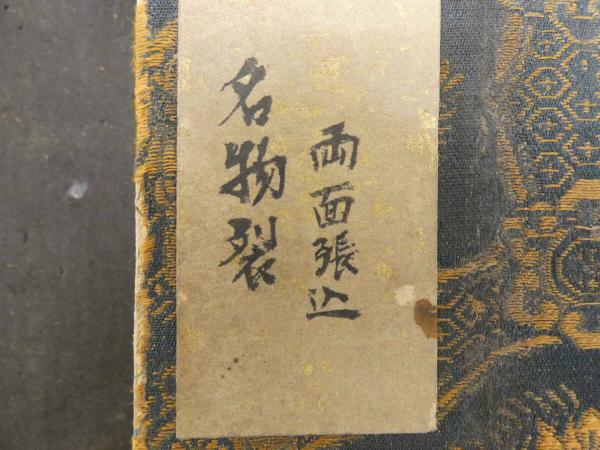 名物裂
両面張込